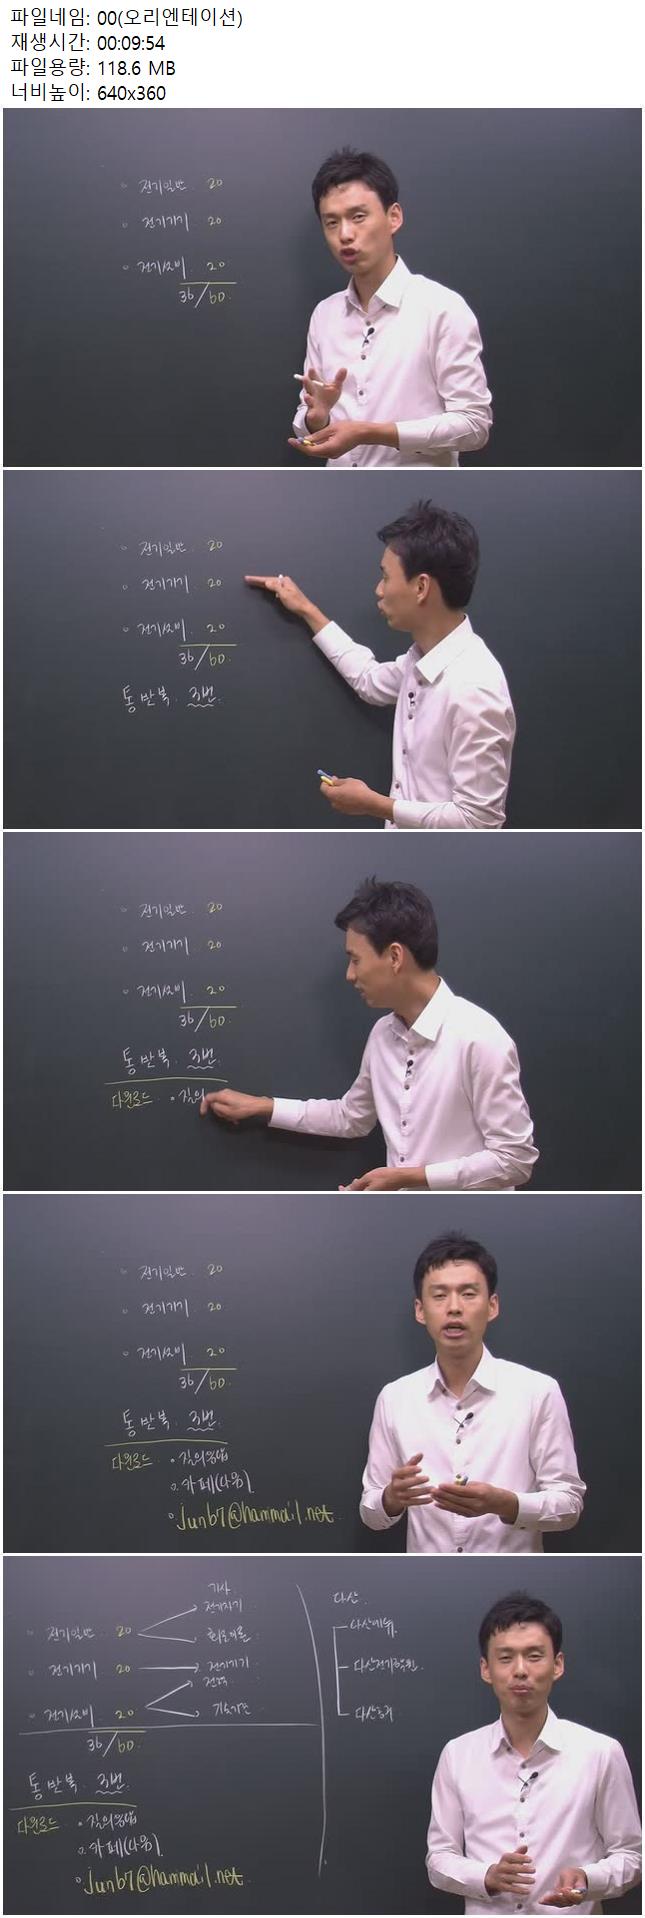 파일네임: 00(오리엔테이션)
재생시간: 00:09:54
파일용량: 118.6 MB
너비높이: 640x360
전기일반. 20
전기기기 20
전기설비. 20
36/60.
전기일반. 20
전기기기. 20
전기설비. 20
36/60.
통 반 복. 3번.
전기일반. 20
전기기기. 20
전기설비. 20
36/60.
통 반 복. 3번.
다운로드. 질의
전기일반. 20
전기기기. 20
전기설비. 20
36/60.
통 반 복. 3번.
다운로드. 질의응답
카페(다음).
jun67@hanmail.net
기사.
전기자기.
전기일반. 20
회로이론.
전기기기 20
전기기기.
전력.
전기설비. 20
기술기준
36/60.
통 반 복. 3번.
다운로드. 질의응답
카페(다음).
jun67@hanmail.net
다산.
다산에듀.
다산전기학원.